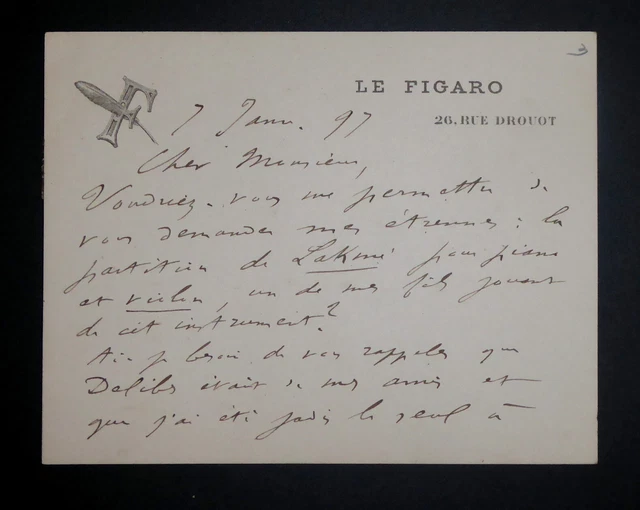 3
LE FIGARO
26, RUE DROUOT
7 Janv. 97
Cher Monsieur,
Voudriez-vous me permettre de
vous demander mes étrennes : la
partition de Lakmé pour piano
et violon, un de mes fils jouant
de cet instrument?
Ai-je besoin de vous rappeler que
Delibes était de mes amis et
que j'ai été jadis le seul à